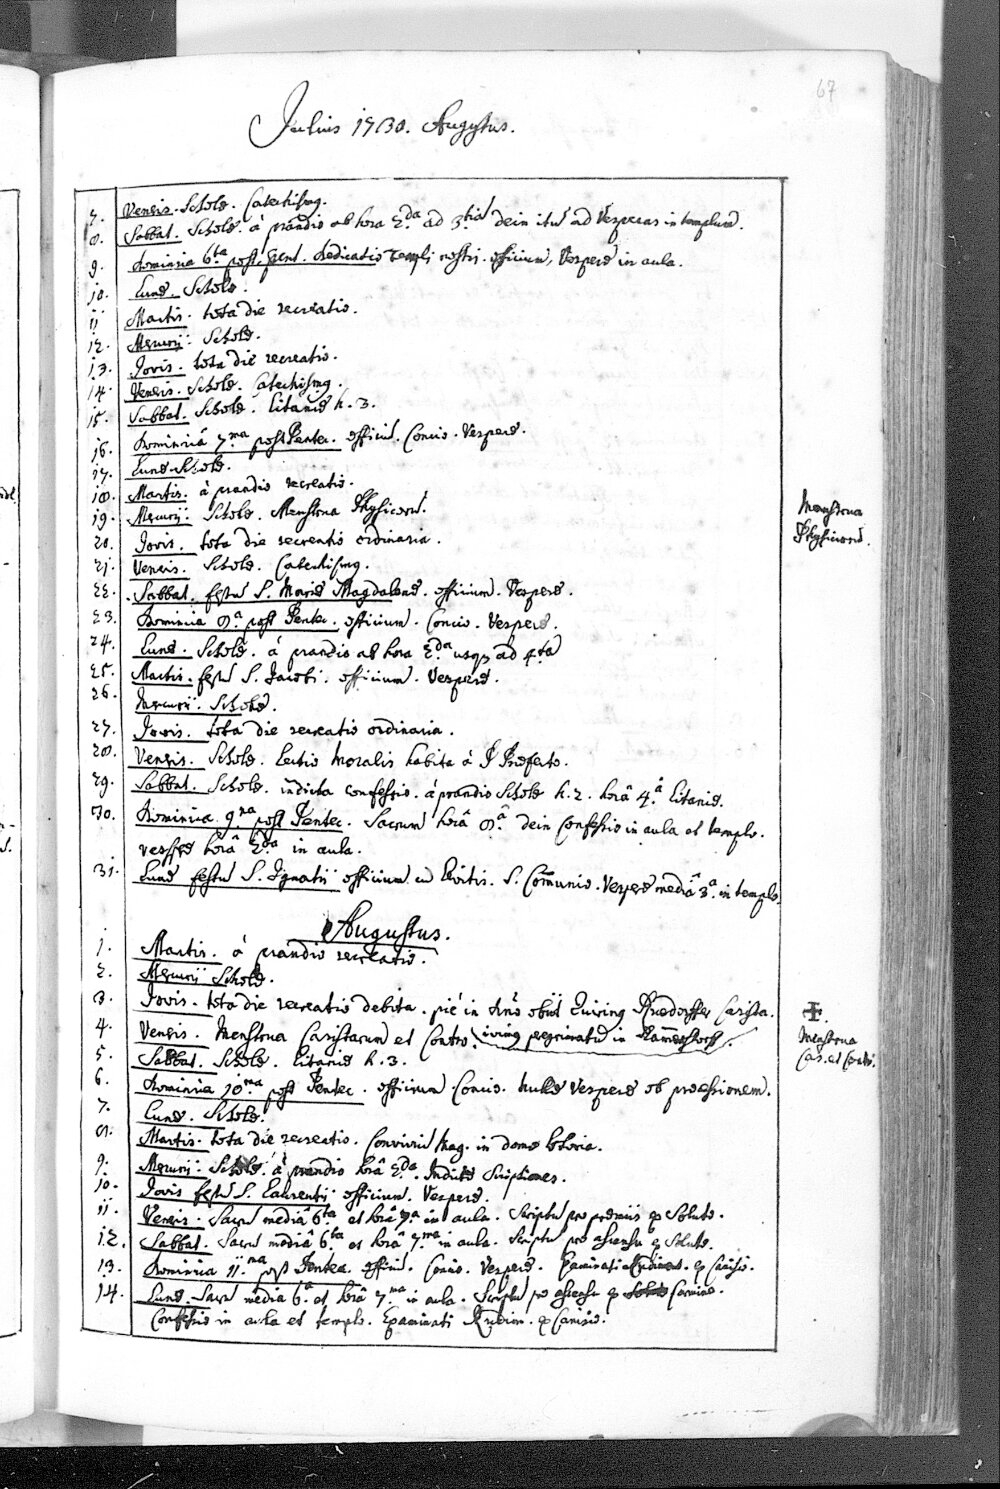 67
Julius 1730. Augustus.
7. Veneris. Scholæ. Catechismg.
8. Sabbat. Scholæ. à prandio ab hora 2.da ad 3.tiã dein itũ ad Vesperas in templum.
9. Dominica 6ta post Pent. Dedicatio Templi nostri. officium, Vesperæ in aula.
10. Lunæ. Scholæ.
11 Martis. tota die recreatio.
12. Mercurij. Scholæ.
13. Jovis. tota die recreatio.
14 Veneris. Scholæ. Catechismg.
15. Sabbat. Scholæ. Litaniæ h. 3.
16. Dominicâ 7.ma post Pentec. officiũ. Concio. Vesperæ.
17. Lunæ Scholæ.
18. Martis. à prandio recreatio.
19. Mercurij. Scholæ. Menstrua Physicorũ.
Menstrua
Physicorũ.
20. Jovis. tota die recreatio ordinaria.
21. Veneris. Scholæ. Catechismg.
22. Sabbat. festũ S. Mariæ Magdalenæ. officium. Vesperæ.
23. Dominica 8.a post Pentec. officium. Concio. Vesperæ.
24. Lunæ. Scholæ. à prandio ab hora 2.da usqz ad 4tã
25. Martis. festũ S. Jacobi. officium. Vesperæ.
26. Mercurij. Scholæ.
27. Jovis. tota die recreatio ordinaria.
28. Veneris. Scholæ. Lectio Moralis habita à P Præfecto.
29. Sabbat. Scholæ. indicta confessio. à prandio Scholæ h. 2. horâ 4.â Litaniæ.
30. Dominica 9na post Pentec. Sacrum horâ 8.â dein Confessio in aula et templo.
vesperæ horâ 2da in aula.
31. Lunæ festũ S. Ignatij officium cũ S. Com̃unio. Vesperæ mediâ 3.a in templo.
Augustus.
1. Martis. à prandio recreatio.
2. Mercurij Scholæ.
3. Jovis. tota die recreatio debita. piè in dño obijt Quiring Casista.
✠.
4. Veneris. Menstrua Casistarum et Contro. iving peregrinatũ in
Menstrua
Cas. et Contr.
5. Sabbat. Scholæ. Litaniæ h. 3.
6. Dominica 10ma post Pentec. officium. Concio. nullæ Vesperæ ob processionem.
7. Lunæ. Scholæ.
8. Martis. tota die recreatio. Conviviũ Mag. in domo
9. Mercurij. Scholæ. à prandio horâ 2.da. Indictæ Scriptiones.
10. Jovis festũ S. Laurentij officium. Vesperæ.
11. Veneris. Sacrũ mediâ 6ta et horâ 7.a in aula. Scriptũ pro præmijs è Soluto.
12. Sabbat. Sacrũ mediâ 6.ta et horâ 7.ma in aula. Scriptũ pro ascensu è Soluto.
13. Dominica 11.ma post Pentec. officiũ. Concio. Vesperæ. Examinati Rudiment. &
14. Lunæ. Sacrũ mediâ 6.a et horâ 7.ma in aula. Scriptũ pro ascensu è Carmine.
Confessio in aula et templo. Examinati Rudim. &